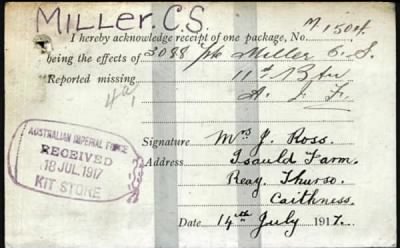 MILLER. C.S.
I hereby acknowledge receipt of one package, No. M 1504.
being the effects of 2088 Pte Miller C. S.
Reported missing 11th Btn
A. I. F.
AUSTRALIAN IMPERIAL FORCE
RECEIVED
18 JUL 1917
KIT STORE
Signature Mrs J. Ross.
Address Isauld Farm.
Reay. Thurso.
Caithness.
Date 14th July 1917.